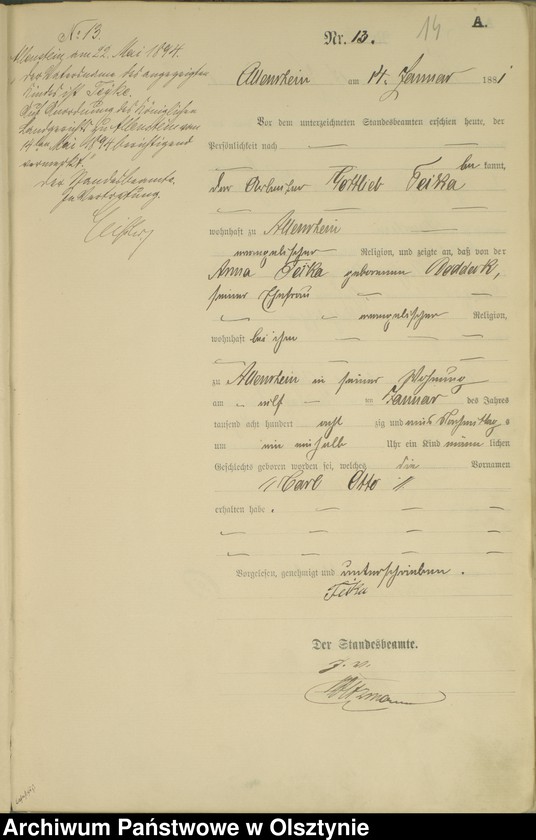 No 13.
Allenstein am 22. Mai 1894.
Der Vatersname des angezeigten
Kindes ist Tejke.
Auf Anordnung des Königlichen
Landgerichts zu Allenstein vom
14ten Mai 1894 berichtigend
vermerkt.
Der Standesbeamte.
In Vertretung.
14
A.
Nr. 13.
Allenstein am 14. Januar 1881
Vor dem unterzeichneten Standesbeamten erschien heute, der
Persönlichkeit nach
be kannt,
der Arbeiter Gottlieb Teika
wohnhaft zu Allenstein
evangelischer Religion, und zeigte an, daß von der
Anna Teika geborenen
seiner Ehefrau
evangelischer Religion,
wohnhaft bei ihm
zu Allenstein in seiner Wohnung
am elf ten Januar des Jahres
tausend acht hundert acht zig und eins Nachmittag s
um ein einhalb Uhr ein Kind männ lichen
Geschlechts geboren worden sei, welches die Vornamen
Carl Otto
erhalten habe.
Vorgelesen, genehmigt und unterschrieben.
Teika
Der Standesbeamte.
J. V.
Archiwum Państwowe w Olsztynie